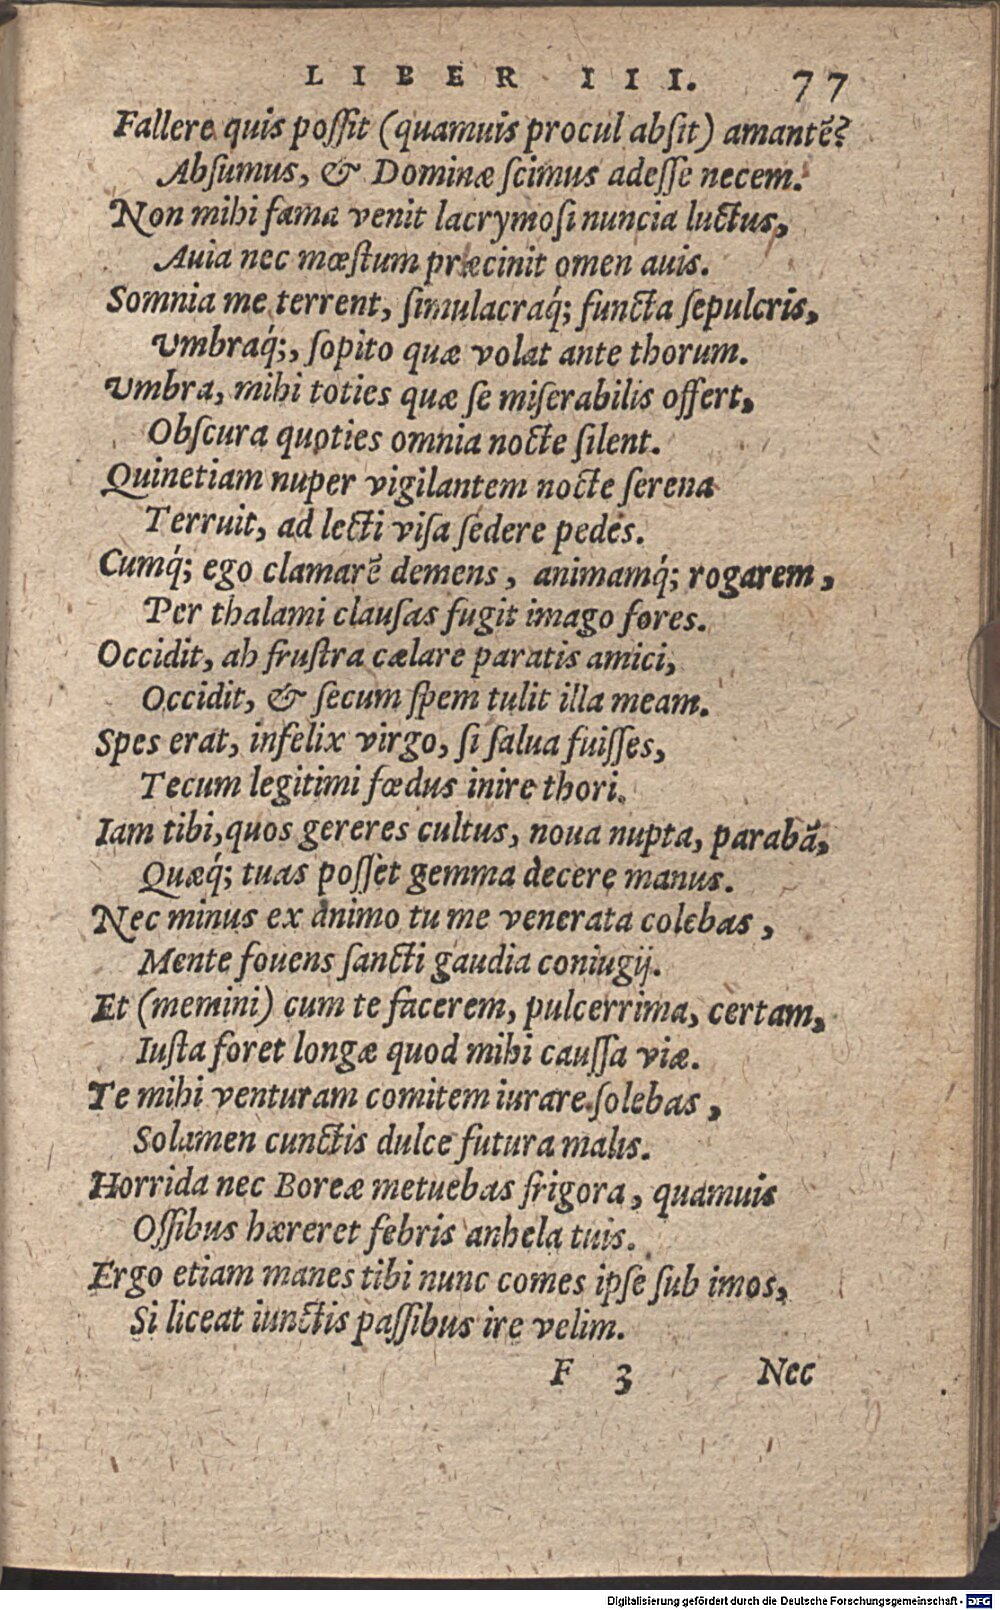 LIBER III. 77
Fallere quis poſſit (quamuis procul abſit) amantẽ?
Abſumus, & Dominæ ſcimus adeſſe necem.
Non mihi fama venit lacrymoſi nuncia luctus,
Auia nec mœſtum præcinit omen auis.
Somnia me terrent, ſimulacraq́; functa ſepulcris,
Vmbraq́;, ſopito quæ volat ante thorum.
Vmbra, mihi toties quæ ſe miſerabilis offert,
Obſcura quoties omnia nocte ſilent.
Quinetiam nuper vigilantem nocte ſerena
Terruit, ad lecti viſa ſedere pedes.
Cumq́; ego clamarẽ demens, animamq́; rogarem,
Per thalami clauſas fugit imago fores.
Occidit, ah fruſtra cælare paratis amici,
Occidit, & ſecum ſpem tulit illa meam.
Spes erat, infelix virgo, ſi ſalua fuiſſes,
Tecum legitimi fœdus inire thori.
Iam tibi, quos gereres cultus, noua nupta, parabã,
Quæq́; tuas poſſet gemma decere manus.
Nec minus ex animo tu me venerata colebas,
Mente fouens ſancti gaudia coniugij.
Et (memini) cum te facerem, pulcerrima, certam,
Iuſta foret longæ quod mihi cauſſa viæ.
Te mihi venturam comitem iurare ſolebas,
Solamen cunctis dulce futura malis.
Horrida nec Boreæ metuebas frigora, quamuis
Oſſibus hæreret febris anhela tuis.
Ergo etiam manes tibi nunc comes ipſe ſub imos,
Si liceat iunctis paſſibus ire velim.
F 3 Nec
Digitalisierung gefördert durch die Deutsche Forschungsgemeinschaft - DFG